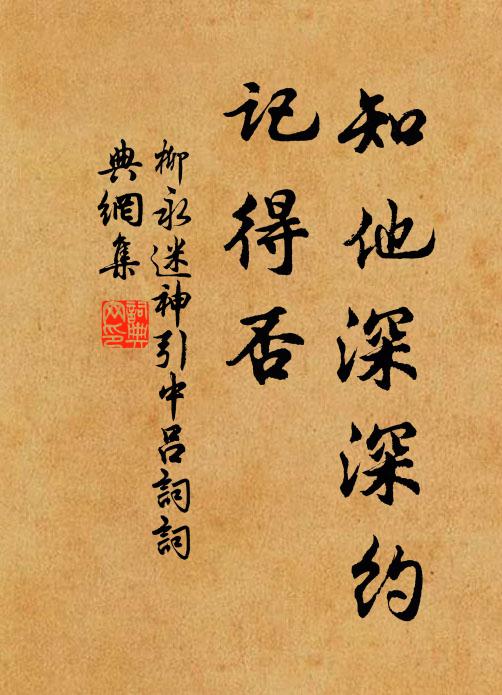 知他深深约
记得否
柳永迷神引中吕词词
典網集
詞典
网印